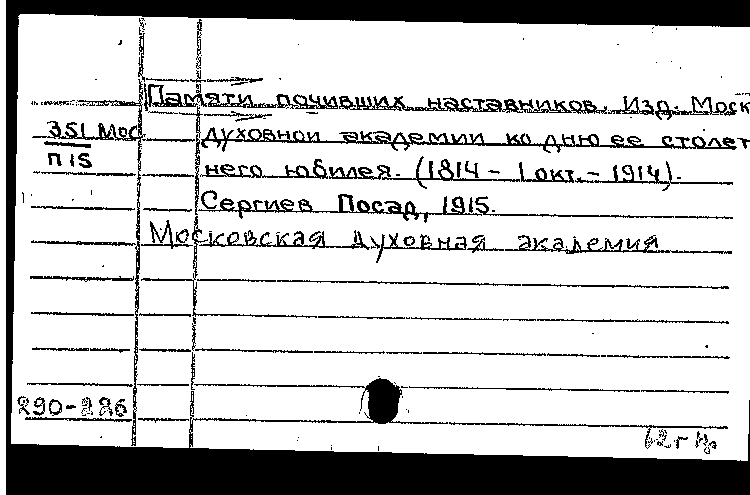 Памяти почивших наставников. Изд. Моск
351 Мос.
П 15
духовной академии ко дню ее столет
него юбилея. (1814 - 1 окт. - 1914).
Сергиев Посад, 1915.
Московская духовная академия
290-226
62 г